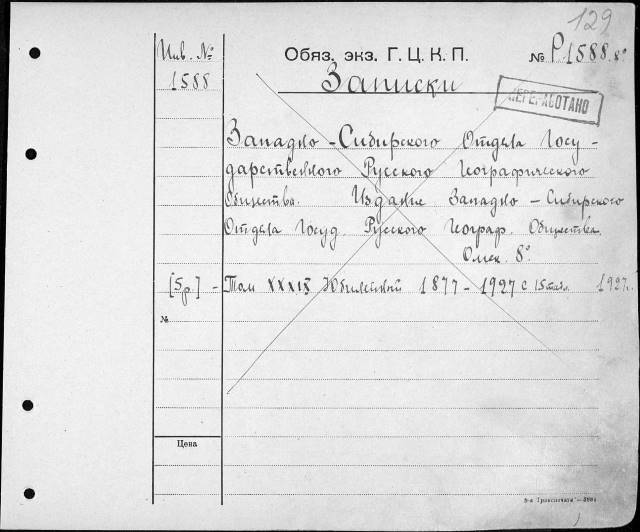 129
Инв. №
1588
Обяз. экз. Г. Ц. К. П.
№ Р1588. 8°
Записки
ПЕРЕРАБОТАНО
Западно-Сибирского Отдела Госу-
дарственного Русского Географического
Общества. Издание Западно-Сибирского
Отдела Госуд. Русского Географ. Общества.
Омск. 8°
[5р.] - Том XXXIX Юбилейный 1877-1927 с 1927г.
№
Цена